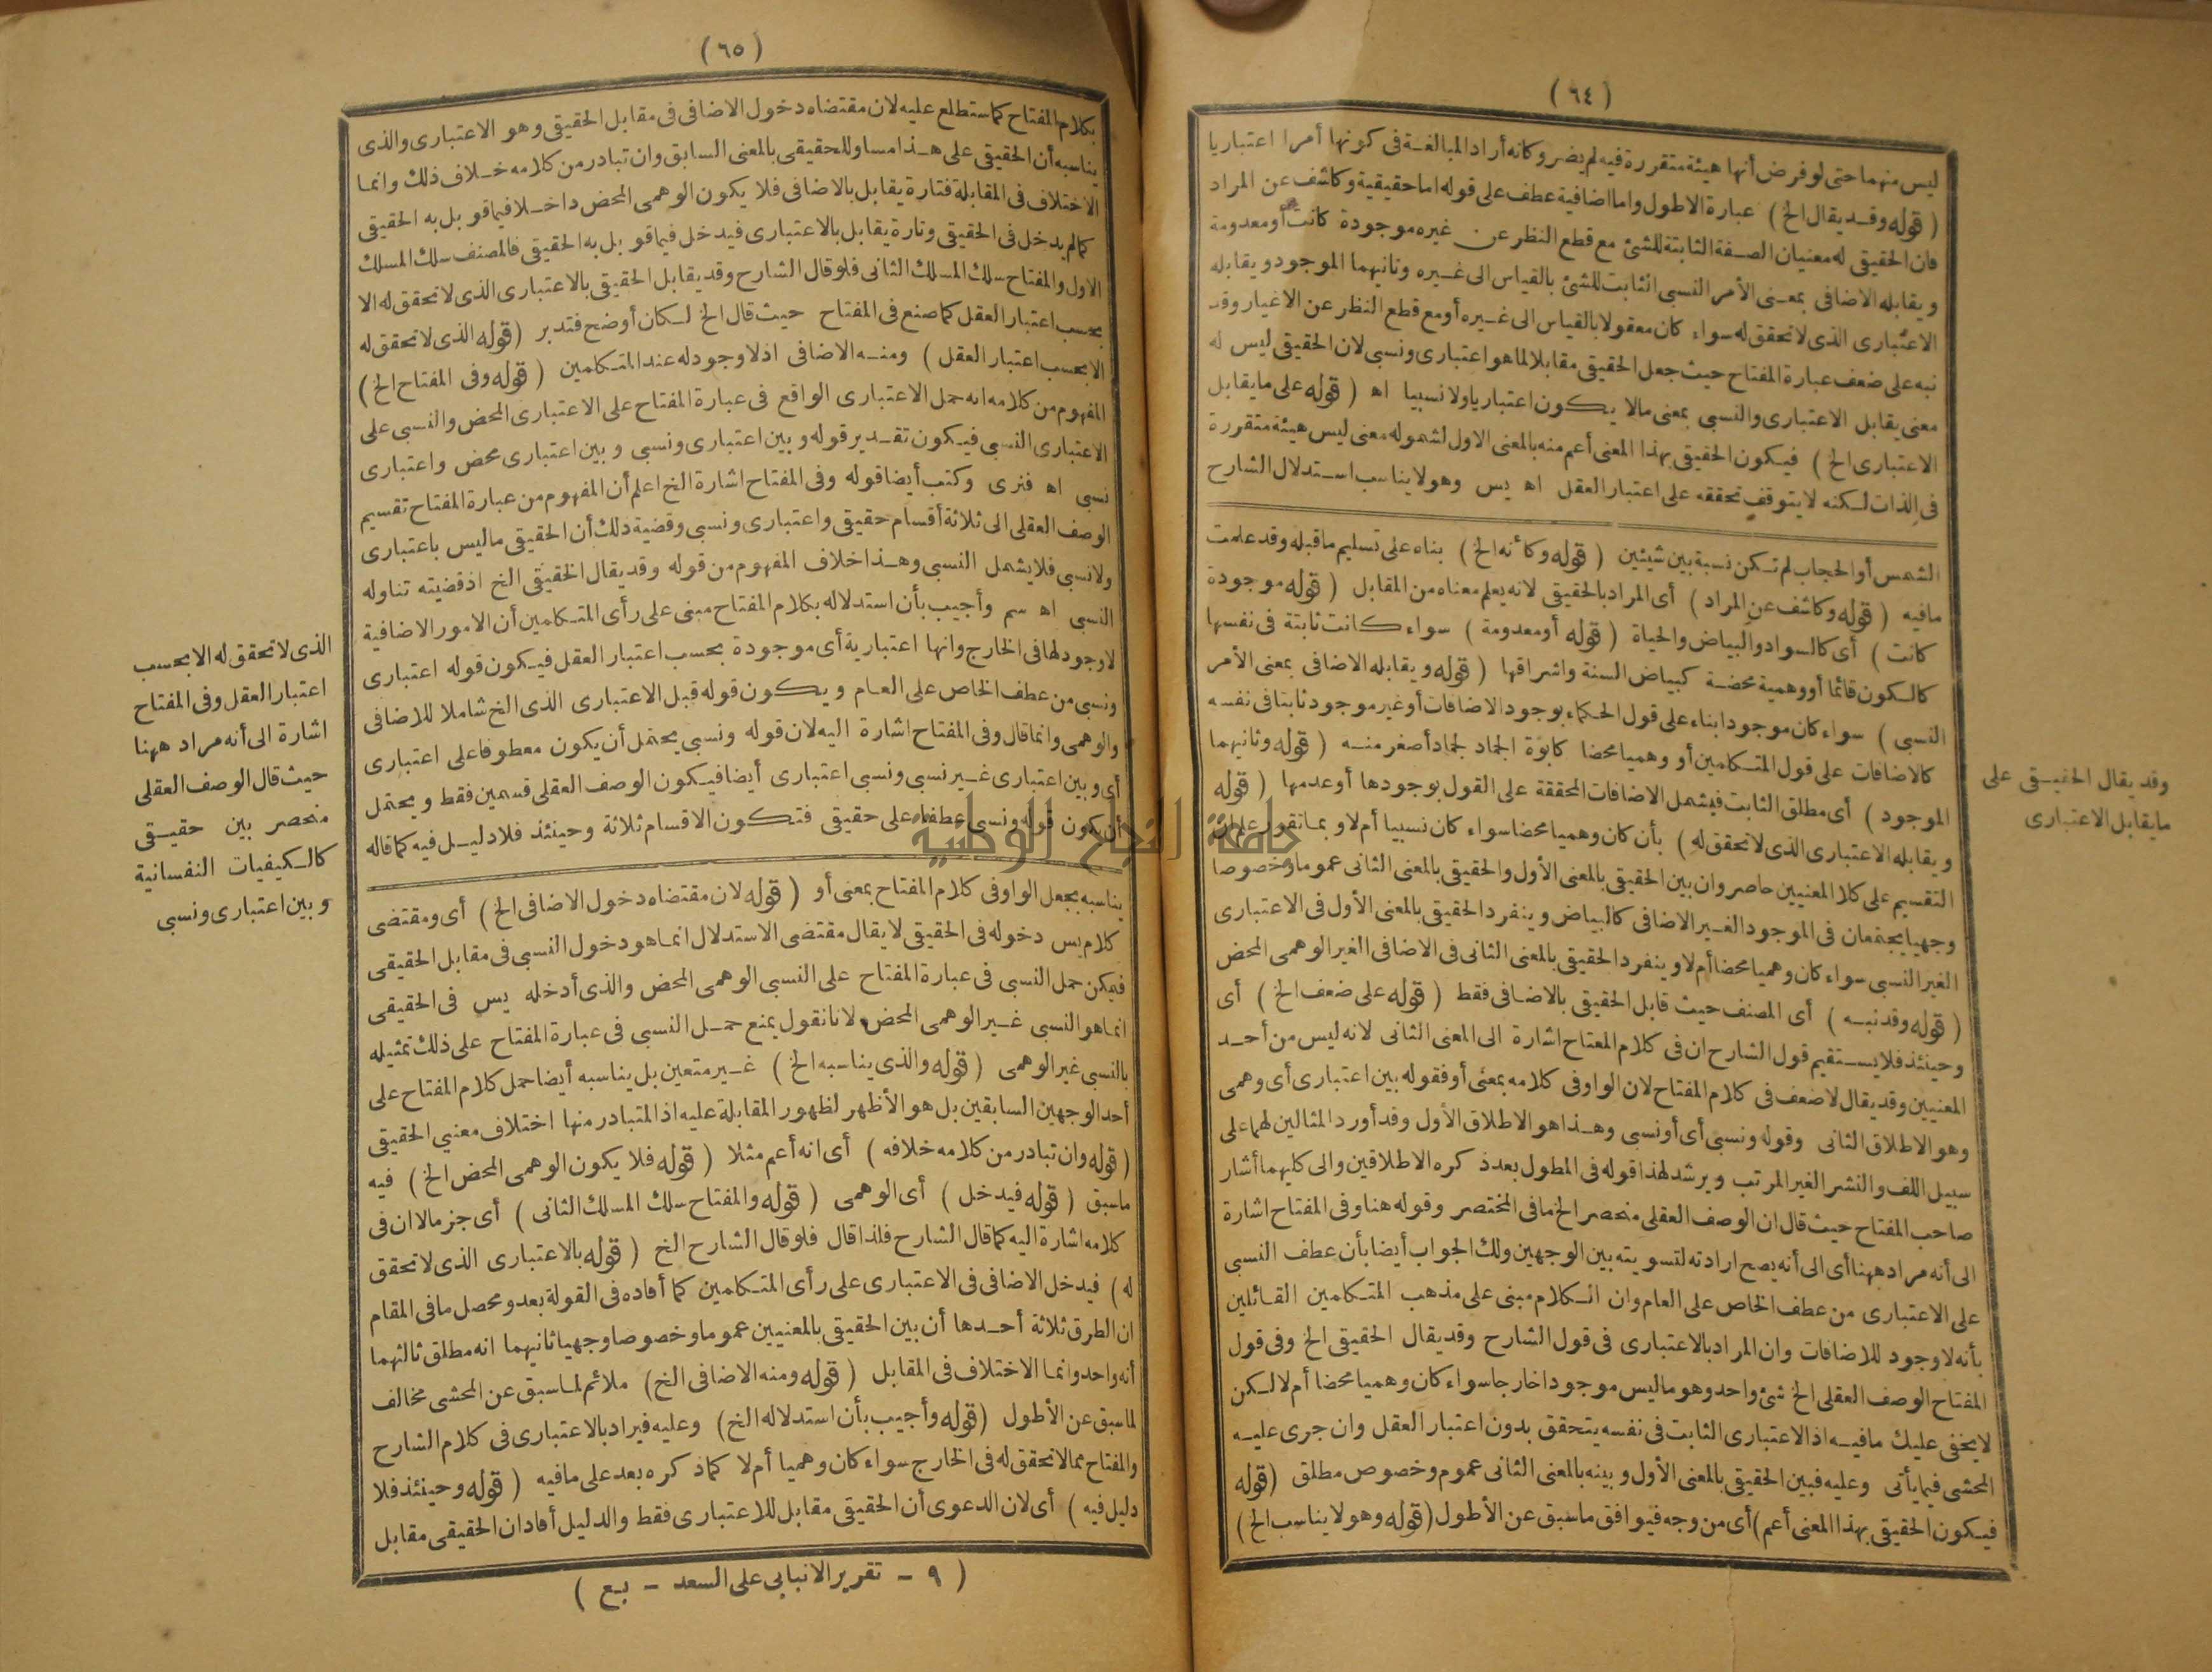 (٦٤)
ليس منهما حتى لو فرض أنها هيئة متقررة فيه لم يضر وكانه أراد المبالغة فى كونها أمرا اعتباريا
(قوله وقد يقال الخ) عبارة الاطول واما اضافية عطف على قوله اما حقيقية وكاشف عن المراد
فان الحقيقى له معنيان الصفة الثابتة للشئ مع قطع النظر عن غيره موجودة كانت أو معدومة
ويقابله الاضافى بمعنى الأمر النسبى الثابت للشئ بالقياس الى غيره وثانيهما الموجود ويقابله
الاعتبارى الذى لا تحقق له سواء كان معقولا بالقياس الى غيره أو مع قطع النظر عن الاغيار وقد
نبه على ضعف عبارة المفتاح حيث جعل الحقيقى مقابلا لما هو اعتبارى ونسبى لان الحقيقى ليس له
معنى يقابل الاعتبارى والنسبى بمعنى ما لا يكون اعتباريا ولا نسبيا اه (قوله على ما يقابل
الاعتبارى الخ) فيكون الحقيقى بهذا المعنى أعم منه بالمعنى الاول لشموله معنى ليس هيئة متقررة
فى الذات لكنه لا يتوقف تحققه على اعتبار العقل اه يس وهو لا يناسب استدلال الشارح
الشمس أو الحجاب لم تكن نسبة بين شيئين (قوله وكأنه الخ) بناه على تسليم ما قبله وقد علمت
ما فيه (قوله وكاشف عن المراد) أى المراد بالحقيقى لانه يعلم معناه من المقابل (قوله موجودة
كانت) أى كالسواد والبياض والحياة (قوله أو معدومة) سواء كانت ثابتة فى نفسها
كالكون قائما أو وهمية محضة كبياض السنة واشراقها (قوله ويقابله الاضافى بمعنى الأمر
النسبى) سواء كان موجودا بناء على قول الحكماء بوجود الاضافات أو غير موجود ثابتا فى نفسه
كالاضافات على قول المتكامين أو وهميا محضا كابوة الجماد لجماد أصغر منه (قوله وثانيهما
الموجود) أى مطلق الثابت فيشمل الاضافات المحققة على القول بوجودها أو عدمها (قوله
ويقابله الاعتبارى الذى لا تحقق له) بأن كان وهميا محضا سواء كان نسبيا أم لا وبما تقرر علم أن
التقسيم على كلا المعنيين حاصر وان بين الحقيقى بالمعنى الأول والحقيقى بالمعنى الثانى عموما وخصوصا
وجهيا يجتمعان فى الموجود الغير الاضافى كالبياض وينفرد الحقيقى بالمعنى الأول فى الاعتبارى
الغير النسبى سواء كان وهميا محضا أم لا وينفرد الحقيقى بالمعنى الثانى فى الاضافى الغير الوهمى المحض
(قوله وقد نبه) أى المصنف حيث قابل الحقيقى بالاضافى فقط (قوله على ضعف الخ) أى
وحينئذ فلا يستقيم قول الشارح ان فى كلام المفتاح اشارة الى المعنى الثانى لانه ليس من أحد
المعنيين وقد يقال لا ضعف فى كلام المفتاح لان الواو فى كلامه بمعنى أو فقوله بين اعتبارى أى وهمى
وهو الاطلاق الثانى وقوله ونسبى أى أو نسبى وهذا هو الاطلاق الأول وقد أورد المثالين لهما على
سبيل اللف والنشر الغير المرتب ويرشد لهذا قوله فى المطول بعد ذكره الاطلاقين والى كليهما أشار
صاحب المفتاح حيث قال ان الوصف العقلى منحصر الخ ما فى المختصر وقوله هنا وفى المفتاح اشارة
الى أنه مراد ههنا أى الى أنه يصح ارادته لتسويته بين الوجهين ولك الجواب أيضا بأن عطف النسبى
على الاعتبارى من عطف الخاص على العام وان الكلام مبنى على مذهب المتكامين القائلين
بأنه لا وجود للاضافات وان المراد بالاعتبارى فى قول الشارح وقد يقال الحقيقى الخ وفى قول
المفتاح الوصف العقلى الخ شئ واحد وهو ما ليس موجودا خارجا سواء كان وهميا محضا أم لا لكن
لا يخفى عليك ما فيه اذ الاعتبارى الثابت فى نفسه يتحقق بدون اعتبار العقل وان جرى عليه
المحشى فيما يأتى وعليه فبين الحقيقى بالمعنى الأول وبينه بالمعنى الثانى عموم وخصوص مطلق (قوله
فيكون الحقيقى بهذا المعنى أعم) أى من وجه فيوافق ما سبق عن الأطول (قوله وهو لا يناسب الخ)
وقد يقال الحقيقى على
ما يقابل الاعتبارى
(٦٥)
بكلام المفتاح كما ستطلع عليه لان مقتضاه دخول الاضافى فى مقابل الحقيقى وهو الاعتبارى والذى
يناسبه أن الحقيقى على هذا مساو للحقيقى بالمعنى السابق وان تبادر من كلامه خلاف ذلك وانما
الاختلاف فى المقابلة فتارة يقابل بالاضافى فلا يكون الوهمى المحض داخلا فيما قوبل به الحقيقى
كما لم يدخل فى الحقيقى وتارة يقابل بالاعتبارى فيدخل فيما قوبل به الحقيقى فالمصنف سلك المسلك
الاول والمفتاح سلك المسلك الثانى فلو قال الشارح وقد يقابل الحقيقى بالاعتبارى الذى لا تحقق له الا
بحسب اعتبار العقل كما صنع فى المفتاح حيث قال الخ لكان أوضح فتدبر (قوله الذى لا تحقق له
الا بحسب اعتبار العقل) ومنه الاضافى اذ لا وجود له عند المتكامين (قوله وفى المفتاح الخ)
المفهوم من كلامه انه حمل الاعتبارى الواقع فى عبارة المفتاح على الاعتبارى المحض والنسبى على
الاعتبارى النسبى فيكون تقدير قوله وبين اعتبارى ونسبى وبين اعتبارى محض واعتبارى
نسبى اه فنرى وكتب أيضا قوله وفى المفتاح اشارة الخ اعلم أن المفهوم من عبارة المفتاح تقسيم
الوصف العقلى الى ثلاثة أقسام حقيقى واعتبارى ونسبى وقضية ذلك أن الحقيقى ما ليس باعتبارى
ولا نسبى فلا يشمل النسبى وهذا خلاف المفهوم من قوله وقد يقال الحقيقى الخ اذ قضيته تناوله
النسبى اه سم وأجيب بأن استدلاله بكلام المفتاح مبنى على رأى المتكامين أن الامور الاضافية
لا وجود لها فى الخارج وانها اعتبارية أى موجودة بحسب اعتبار العقل فيكون قوله اعتبارى
ونسبى من عطف الخاص على العام ويكون قوله قبل الاعتبارى الذى الخ شاملا للاضافى
والوهمى وانما قال وفى المفتاح اشارة اليه لان قوله ونسبى يحتمل أن يكون معطوفا على اعتبارى
أى وبين اعتبارى غير نسبى ونسبى اعتبارى أيضا فيكون الوصف العقلى قسمين فقط ويحتمل
أن يكون قوله ونسبى عطفا على حقيقى فتكون الاقسام ثلاثة وحينئذ فلا دليل فيه كما قاله
يناسبه بجعل الواو فى كلام المفتاح بمعنى أو (قوله لان مقتضاه دخول الاضافى الخ) أى ومقتضى
كلام يس دخوله فى الحقيقى لا يقال مقتضى الاستدلال انما هو دخول النسبى فى مقابل الحقيقى
فيمكن حمل النسبى فى عبارة المفتاح على النسبى الوهمى المحض والذى أدخله يس فى الحقيقى
انما هو النسبى غير الوهمى المحض لانا نقول يمنع حمل النسبى فى عبارة المفتاح على ذلك تمثيله
بالنسبى غير الوهمى (قوله والذى يناسبه الخ) غير متعين بل يناسبه أيضا حمل كلام المفتاح على
أحد الوجهين السابقين بل هو الأظهر لظهور المقابلة عليه اذ المتبادر منها اختلاف معنيى الحقيقى
(قوله وان تبادر من كلامه خلافه) أى انه أعم مثلا (قوله فلا يكون الوهمى المحض الخ) فيه
ما سبق (قوله فيدخل) أى الوهمى (قوله والمفتاح سلك المسلك الثانى) أى جزما لا ان فى
كلامه اشارة اليه كما قال الشارح فلذا قال فلو قال الشارح الخ (قوله بالاعتبارى الذى لا تحقق
له) فيدخل الاضافى فى الاعتبارى على رأى المتكامين كما أفاده فى القولة بعد ومحصل ما فى المقام
ان الطرق ثلاثة أحدها أن بين الحقيقى بالمعنيين عموما وخصوصا وجهيا ثانيهما انه مطلق ثالثهما
أنه واحد وانما الاختلاف فى المقابل (قوله ومنه الاضافى الخ) ملائم لما سبق عن المحشى مخالف
لما سبق عن الأطول (قوله وأجيب بأن استدلاله الخ) وعليه فيراد بالاعتبارى فى كلام الشارح
والمفتاح ما لا تحقق له فى الخارج سواء كان وهميا أم لا كما ذكره بعد على ما فيه (قوله وحينئذ فلا
دليل فيه) أى لان الدعوى أن الحقيقى مقابل للاعتبارى فقط والدليل أفاد ان الحقيقى مقابل
(٩ - تقرير الانبابى على السعد - بع)
الذى لا تحقق له الا بحسب
اعتبار العقل وفى المفتاح
اشارة الى أنه مراد ههنا
حيث قال الوصف العقلى
منحصر بين حقيقى
كالكيفيات النفسانية
وبين اعتبارى ونسبى
جامعة النجاح الوطنية